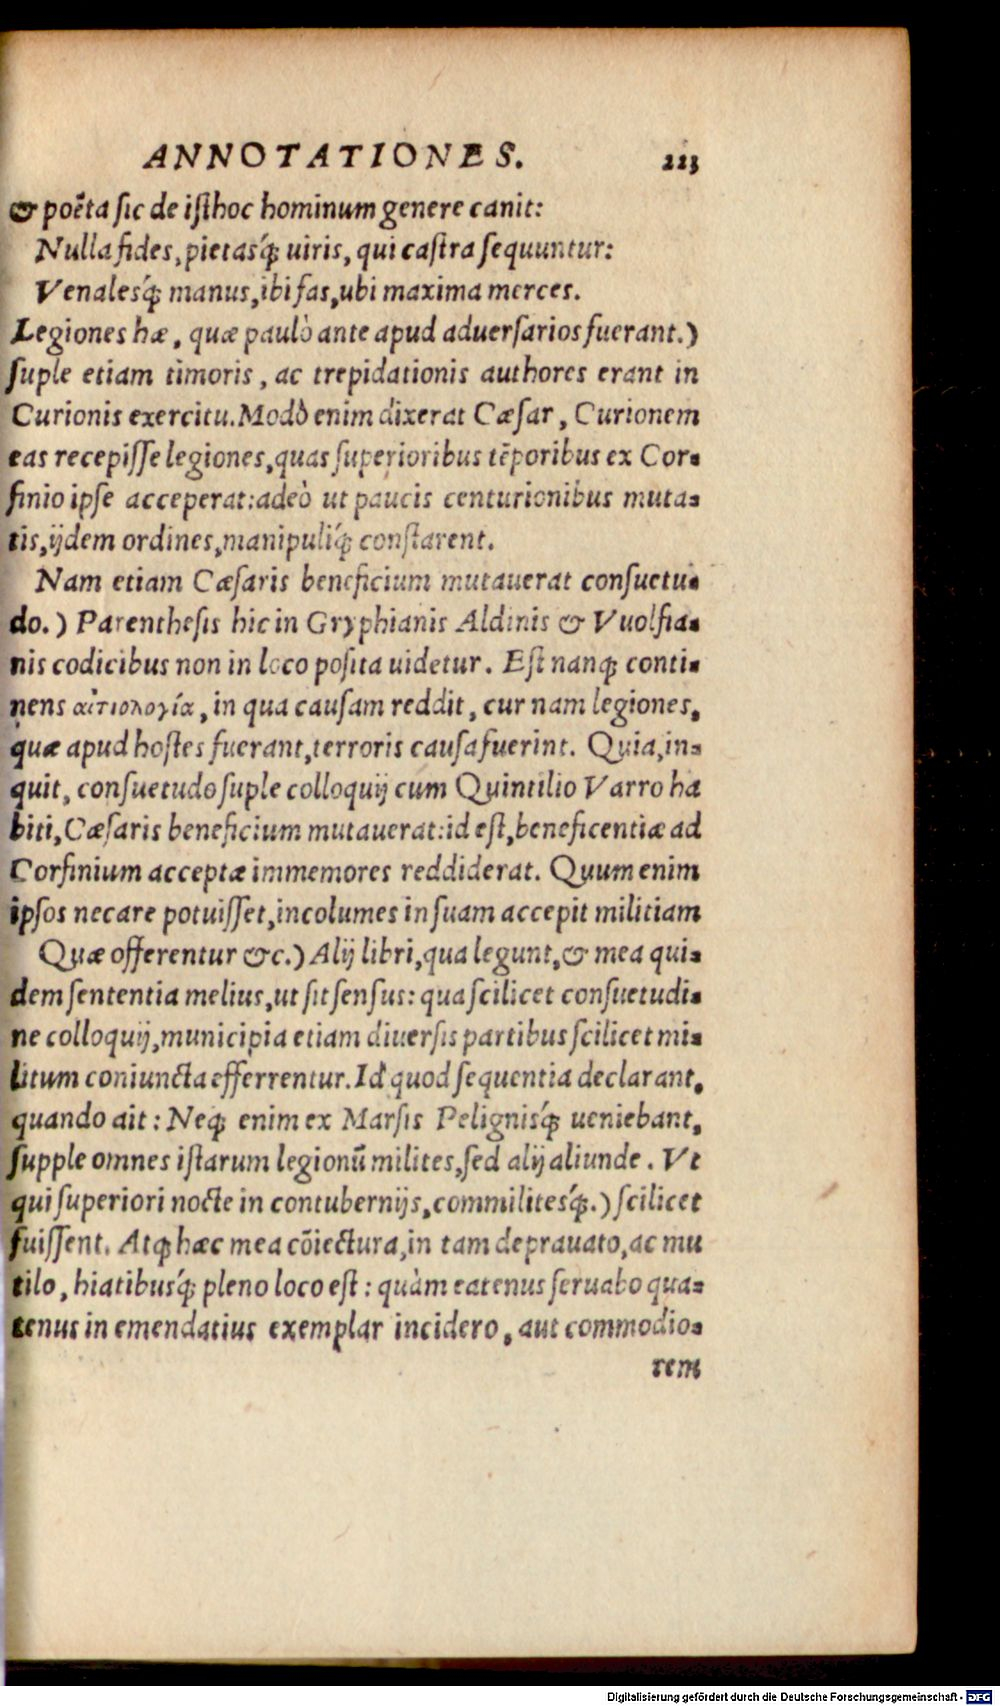 ANNOTATIONES. 223
& poëta sic de isthoc hominum genere canit:
Nulla fides, pietasq́; uiris, qui castra sequuntur:
Venalesq́; manus, ibi fas, ubi maxima merces.
Legiones hæ, quæ paulò ante apud aduersarios fuerant.)
suple etiam timoris, ac trepidationis authores erant in
Curionis exercitu. Modò enim dixerat Cæsar, Curionem
eas recepisse legiones, quas superioribus tēporibus ex Cor-
finio ipse acceperat: adeò ut paucis centurionibus muta-
tis, ijdem ordines, manipuliq́; constarent.
Nam etiam Cæsaris beneficium mutauerat consuetu-
do.) Parenthesis hic in Gryphianis Aldinis & Vuolfia-
nis codicibus non in loco posita uidetur. Est nanq; conti-
nens αἰτιολογία, in qua causam reddit, cur nam legiones,
quæ apud hostes fuerant, terroris causa fuerint. Quia, in-
quit, consuetudo suple colloquij cum Quintilio Varro ha
biti, Cæsaris beneficium mutauerat: id est, beneficentiæ ad
Corfinium acceptæ immemores reddiderat. Quum enim
ipsos necare potuisset, incolumes in suam accepit militiam
Quæ offerentur &c.) Alij libri, qua legunt, & mea qui-
dem sententia melius, ut sit sensus: qua scilicet consuetudi-
ne colloquij, municipia etiam diuersis partibus scilicet mi-
litum coniuncta efferrentur. Id quod sequentia declarant,
quando ait: Neq; enim ex Marsis Pelignisq́; ueniebant,
supple omnes istarum legionū milites, sed alij aliunde. Vt
qui superiori nocte in contubernijs, commilitesq́;.) scilicet
fuissent. Atq; hæc mea cōiectura, in tam deprauato, ac mu
tilo, hiatibusq́; pleno loco est: quàm eatenus seruabo qua-
tenus in emendatius exemplar incidero, aut commodio-
rem
Digitalisierung gefördert durch die Deutsche Forschungsgemeinschaft - DFG